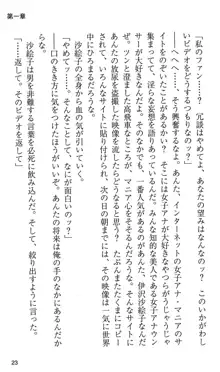 第一章
「私のファン……？　冗談はやめてよ。あんたの望みはなんなのッ？　このいかがわし
いビデオをどうするつもりなのッ？」
「へへへ……。そう興奮するなよ。あんた、インターネットの女子アナ・マニアのサ
イトをのぞいたことがあるかい？　そこには女子アナが好きで好きでたまらない奴らが
集まってきて、淫らな妄想を語りあっている。みんな知的な美人である女子アナウン
サーが大好きなんだ……。なかでも、一番人気があるのが、伊沢沙絵子なんだよ。
あんたの高飛車なところが、マニアをそそるんだろうな。たとえば、このビデオの
あんたの放尿する映像を流したらどうなると思う？　たぶんまたたくまにコピー
され、いろんなサイトに貼り付けられ、次の日の朝までには、その映像は一気に世界
中にひろまるだろうな」
沙絵子の全身から血の気が引いていく。
「やめてッ……。そんなことして、なにが面白いのッ？」
「あんたの将来は俺の手のなかにあるんだからな」
沙絵子は男を非難する言葉を必死に飲み込んだ。そして、絞り出すように言った。
「……返して。そのビデオを返して」
23